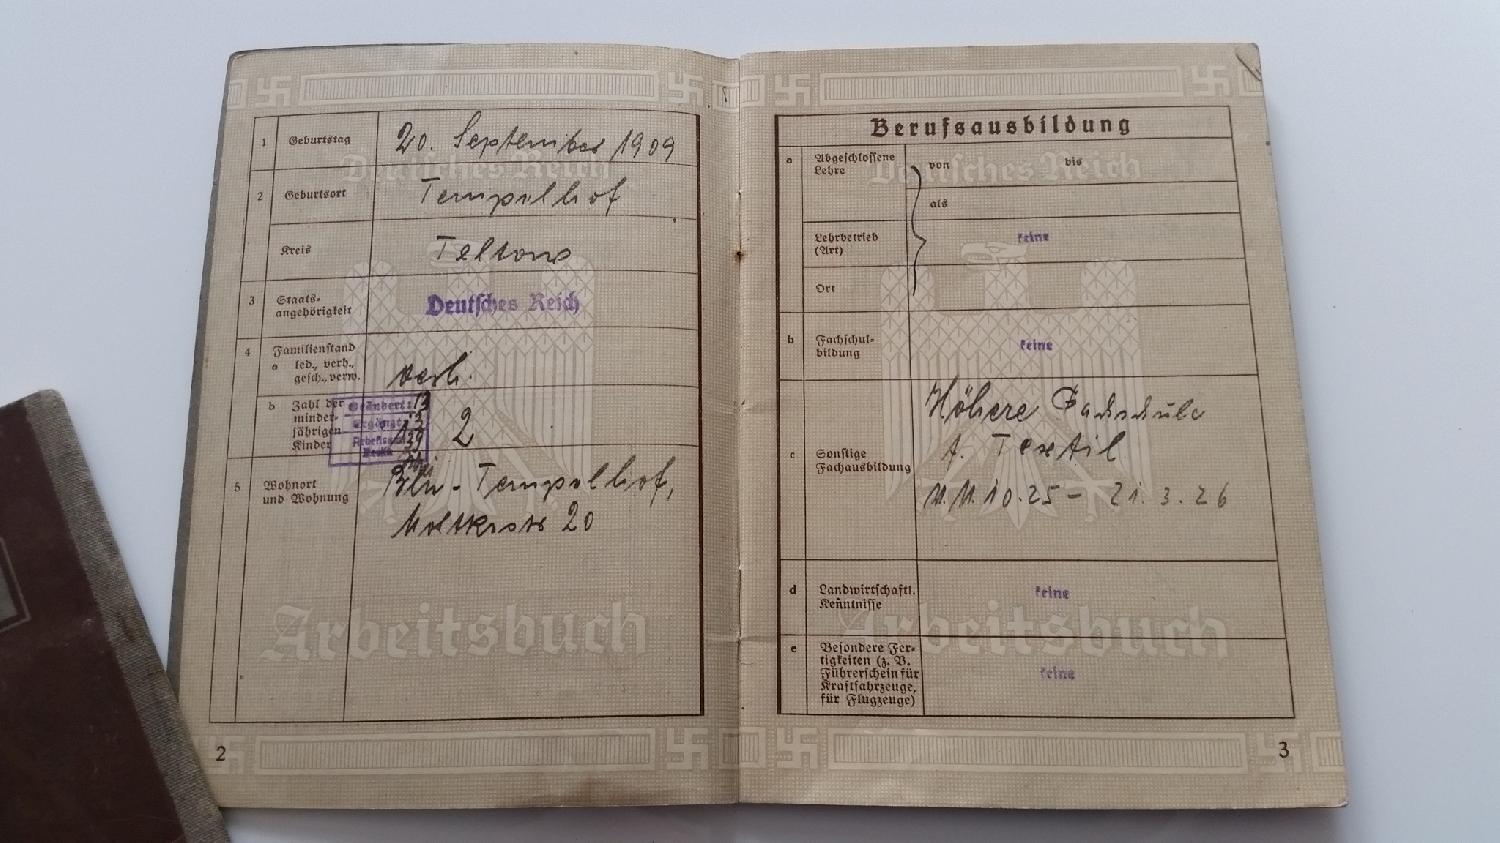 1 Geburtstag 20. September 1909
Deutsches Reich
2 Geburtsort Tempelhof
Kreis Teltow
3 Staats-
angehörigkeit Deutsches Reich
4 Familienstand
a led., verh.,
gesch., verw. verh.
b Zahl der
minder-
jährigen
Kinder 2
Geändert:
Ergänzt:
5 Wohnort
und Wohnung Bln.-Tempelhof,
Moltkestr 20
Arbeitsbuch
2
Berufsausbildung
a Abgeschlossene
Lehre von bis
Deutsches Reich
als
Lehrbetrieb
(Art) keine
Ort
b Fachschul-
bildung keine
c Sonstige
Fachausbildung Höhere Fachschule
f. Textil
10.25 - 21.3.26
d Landwirtschaftl.
Kenntnisse keine
Arbeitsbuch
e Besondere Fer-
tigkeiten (z. B.
Führerschein für
Kraftfahrzeuge,
für Flugzeuge) keine
3